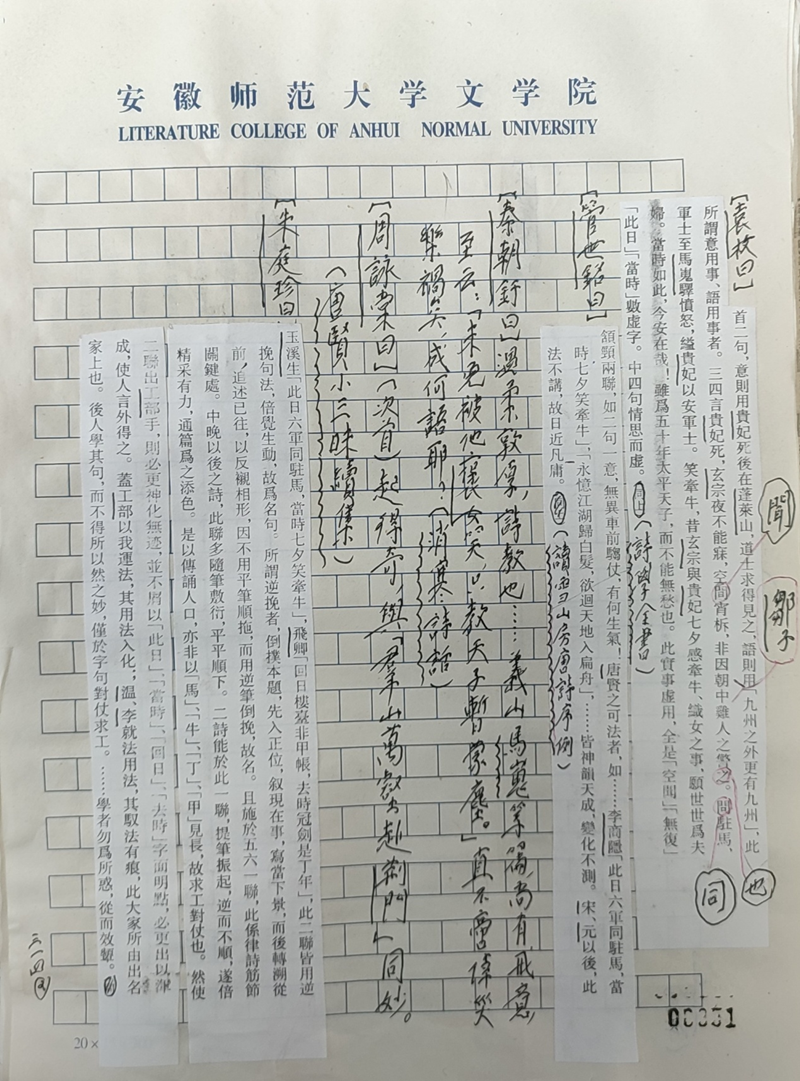 安徽师范大学文学院
LITERATURE COLLEGE OF ANHUI NORMAL UNIVERSITY
【袁枚曰】首二句，意則用貴妃死後在蓬萊山，道士求得見之，語則用「九州之外更有九州」，此
鄒子
也
所謂意用事、語用事者。三四言貴妃死，玄宗夜不能寐，空問宵柝，非因朝中雞人之警之。間駐馬，
聞
同
軍士至馬嵬驛憤怒，縊貴妃以安軍士。笑牽牛，昔玄宗與貴妃七夕感牽牛、織女之事，願世世爲夫
婦。當時如此，今安在哉！雖爲五十年太平天子，而不能無愁也。此實事虛用，全是「空聞」「無復」
「此日」「當時」數虛字。中四句情思而虛。（詩學全書）
【管世銘曰】頷頸兩聯，如二句一意，無異車前騶仗，有何生氣！唐賢之可法者，如……李商隱「此日六軍同駐馬，當
時七夕笑牽牛」，「永憶江湖歸白髮，欲迴天地入扁舟」，……皆神韻天成，變化不測。宋、元以後，此
法不講，故日近凡庸。（讀雪山房唐詩序例）
【秦朝釪曰】溫柔敦厚，詩教也……義山馬嵬等篇，尚有戒意，
至云：「未免被他褒女笑，只教天子暫蒙塵。」真不啻倖災
樂禍矣，成何語耶？（消寒詩話）
【周詠棠曰】（次首）起得奇，與「羣山萬壑赴荊門」同妙。
（唐賢小三昧續集）
【朱庭珍曰】玉溪生「此日六軍同駐馬，當時七夕笑牽牛」，飛卿「回日樓臺非甲帳，去時冠劍是丁年」，此二聯皆用逆
挽句法，倍覺生動，故爲名句。所謂逆挽者，倒撲本題，先入正位，敘現在事，寫當下景，而後轉溯從
前，追述已往，以反襯相形，因不用平筆順拖，而用逆筆倒挽，故名。且施於五六一聯，此係律詩筋節
關鍵處。中晚以後之詩，此聯多隨筆敷衍，平平順下。二詩能於此一聯，提筆振起，逆而不順，遂倍
精采有力，通篇爲之添色。是以傳誦人口，亦非以「馬」、「牛」、「丁」、「甲」見長，故求工對仗也。然使
二聯出工部手，則必更神化無迹，並不屑以「此日」、「當時」、「回日」、「去時」字面明點，必更出以渾
成，使人言外得之。蓋工部以我運法，其用法入化；溫、李就法用法，其馭法有痕，此大家所由出名
家上也。後人學其句，而不得所以然之妙，僅於字句對仗求工。……學者勿爲所惑，從而效顰。
00831
20×